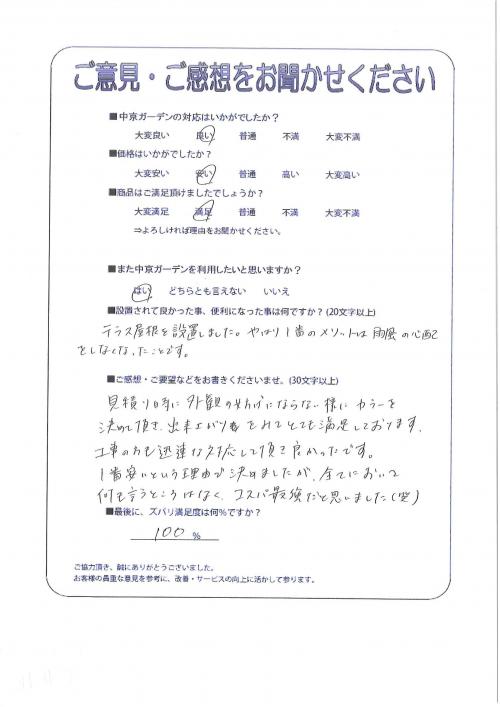 ご意見・ご感想をお聞かせください
■中京ガーデンの対応はいかがでしたか？
大変良い 良い 普通 不満 大変不満
■価格はいかがでしたか？
大変安い 安い 普通 高い 大変高い
■商品はご満足頂けましたでしょうか？
大変満足 満足 普通 不満 大変不満
⇒よろしければ理由をお聞かせください。
■また中京ガーデンを利用したいと思いますか？
はい どちらとも言えない いいえ
■設置されて良かった事、便利になった事は何ですか？(20文字以上)
テラス屋根を設置しました。やはり1番のメリットは雨風の心配
をしなくなったことです。
■ご感想・ご要望などをお書きくださいませ。(30文字以上)
見積り時に外観の妨げにならない様にカラーを
決めて頂き、出来上がりをみてとても満足しております。
工事の方も迅速な対応して頂き良かったです。
1番安いという理由で決めましたが、全てにおいて
何も言うところはなく、コスパ最強だと思いました(笑)
■最後に、ズバリ満足度は何%ですか？
100 %
ご協力頂き、誠にありがとうございました。
お客様の貴重な意見を参考に、改善・サービスの向上に活かして参ります。